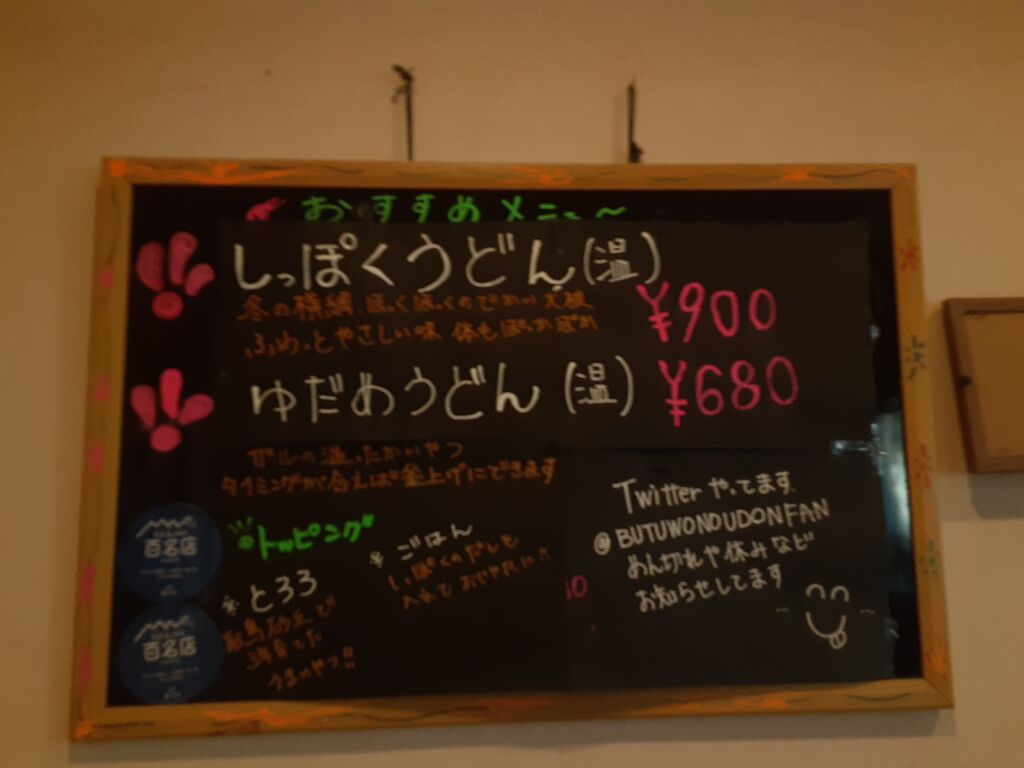 おすすめメニュ〜
しっぽくうどん(温)
冬の横綱、ぼくぼくのでかい大根
ふわっとやさしい味 体もぽっかぽか
¥900
ゆだめうどん(温)
¥680
ザルの温ったかいやつ
タイミングが合えば釜上げにできます
トッピング
※とろろ
鳥取砂丘で
うまいやつ!!
※ごはん
しっぽくのだしと
入れておじやたに!!
Twitterやってます
@BUTUWONOUDONFAN
めん切れや休みなど
お知らせしてます
百名店
百名店